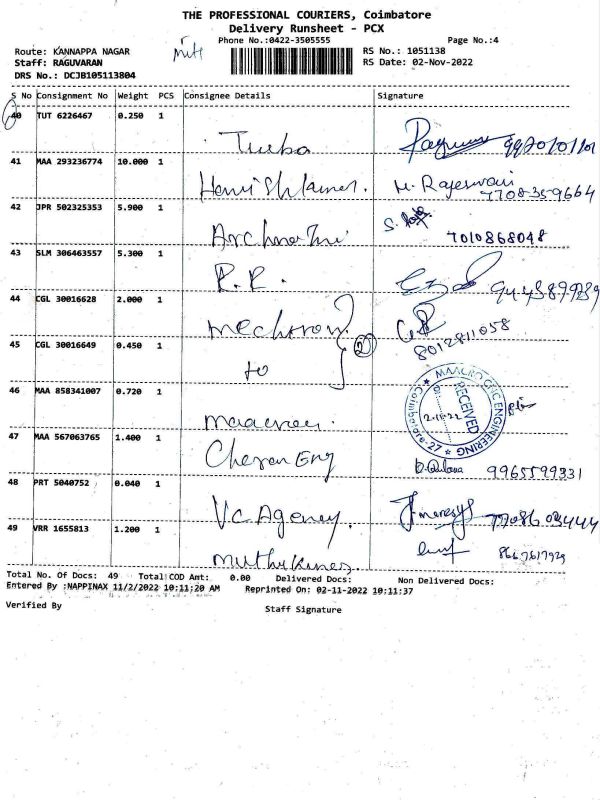 THE PROFESSIONAL COURIERS, Coimbatore
Delivery Runsheet - PCX
Phone No.:0422-3505555 Page No.:4
Route: KANNAPPA NAGAR RS No.: 1051138
Staff: RAGUVARAN RS Date: 02-Nov-2022
DRS No.: DCJB105113804
S No Consignment No Weight PCS Consignee Details Signature
40 TUT 6226467 0.250 1
41 MAA 293236774 10.000 1
H. Rajeswari
7708359664
42 JPR 502325353 5.900 1
7010868048
43 SLM 306463557 5.300 1
R.R.
44 CGL 30016628 2.000 1
8012811058
45 CGL 30016649 0.450 1
to
46 MAA 858341007 0.720 1
MAACRO CNC ENGINEERING
RECEIVED
Coimbatore-27
47 MAA 567063765 1.400 1
Cheran Eng
9965599331
48 PRT 5040752 0.040 1
V.C. Agency.
49 VRR 1655813 1.200 1
Total No. Of Docs: 49 Total COD Amt: 0.00 Delivered Docs: Non Delivered Docs:
Entered By :NAPPINAX 11/2/2022 10:11:20 AM Reprinted On: 02-11-2022 10:11:37
Verified By Staff Signature